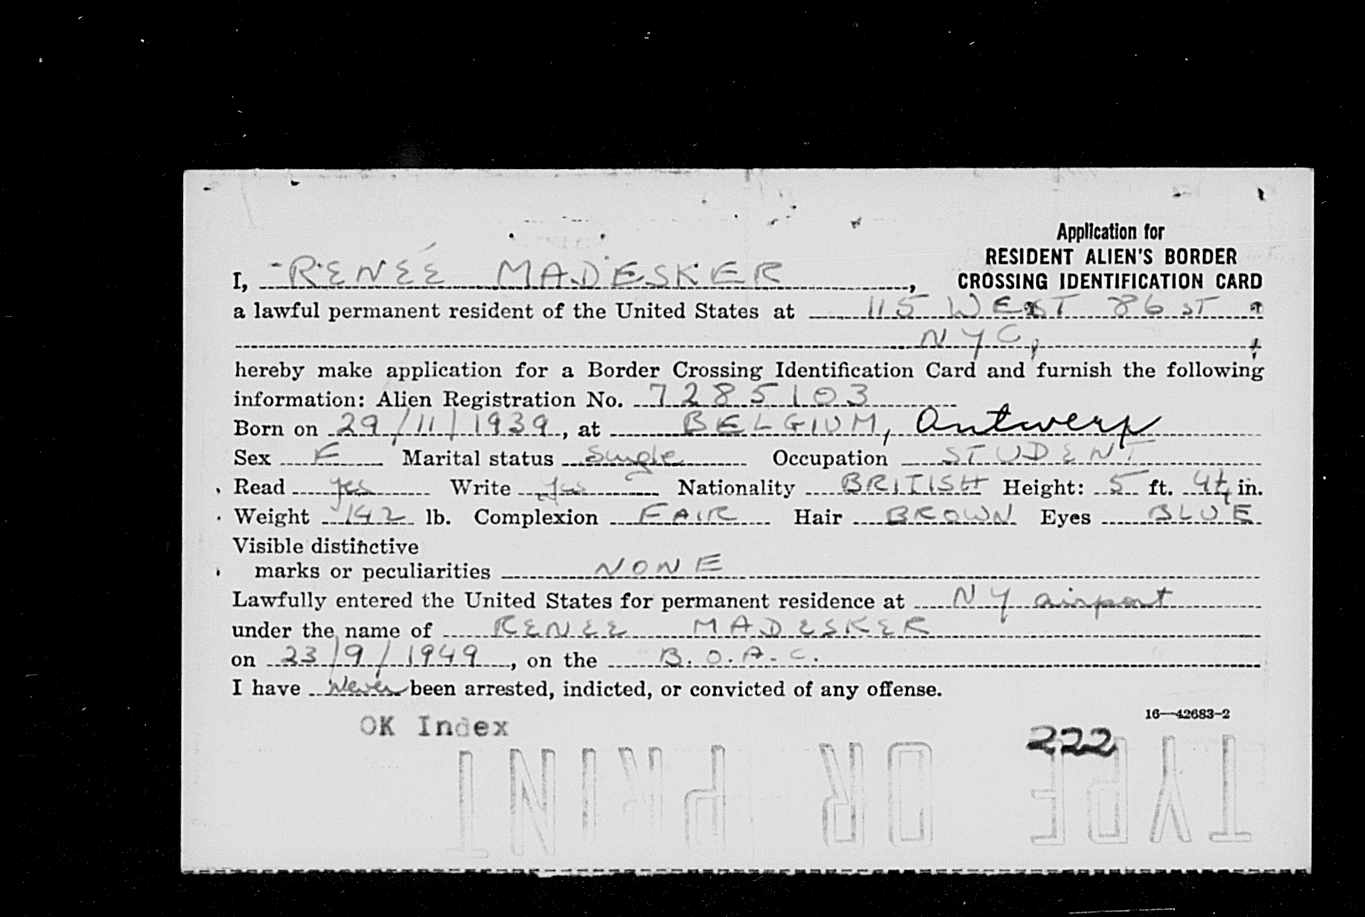 Application for
RESIDENT ALIEN'S BORDER
CROSSING IDENTIFICATION CARD
I, RENÉE MADESKER,
a lawful permanent resident of the United States at 115 WEST 86 ST
NYC,
hereby make application for a Border Crossing Identification Card and furnish the following
information: Alien Registration No. 7285103
Born on 29/11/1939, at BELGIUM, Antwerp
Sex F Marital status Single Occupation STUDENT
Read yes Write yes Nationality BRITISH Height: 5 ft. 4½ in.
Weight 142 lb. Complexion FAIR Hair BROWN Eyes BLUE
Visible distinctive
marks or peculiarities NONE
Lawfully entered the United States for permanent residence at NY airport
under the name of RENEE MADESKER
on 23/9/1949, on the B.O.A.C.
I have Never been arrested, indicted, or convicted of any offense.
16—42683-2
OK Index
222
TYPE OR PRINT